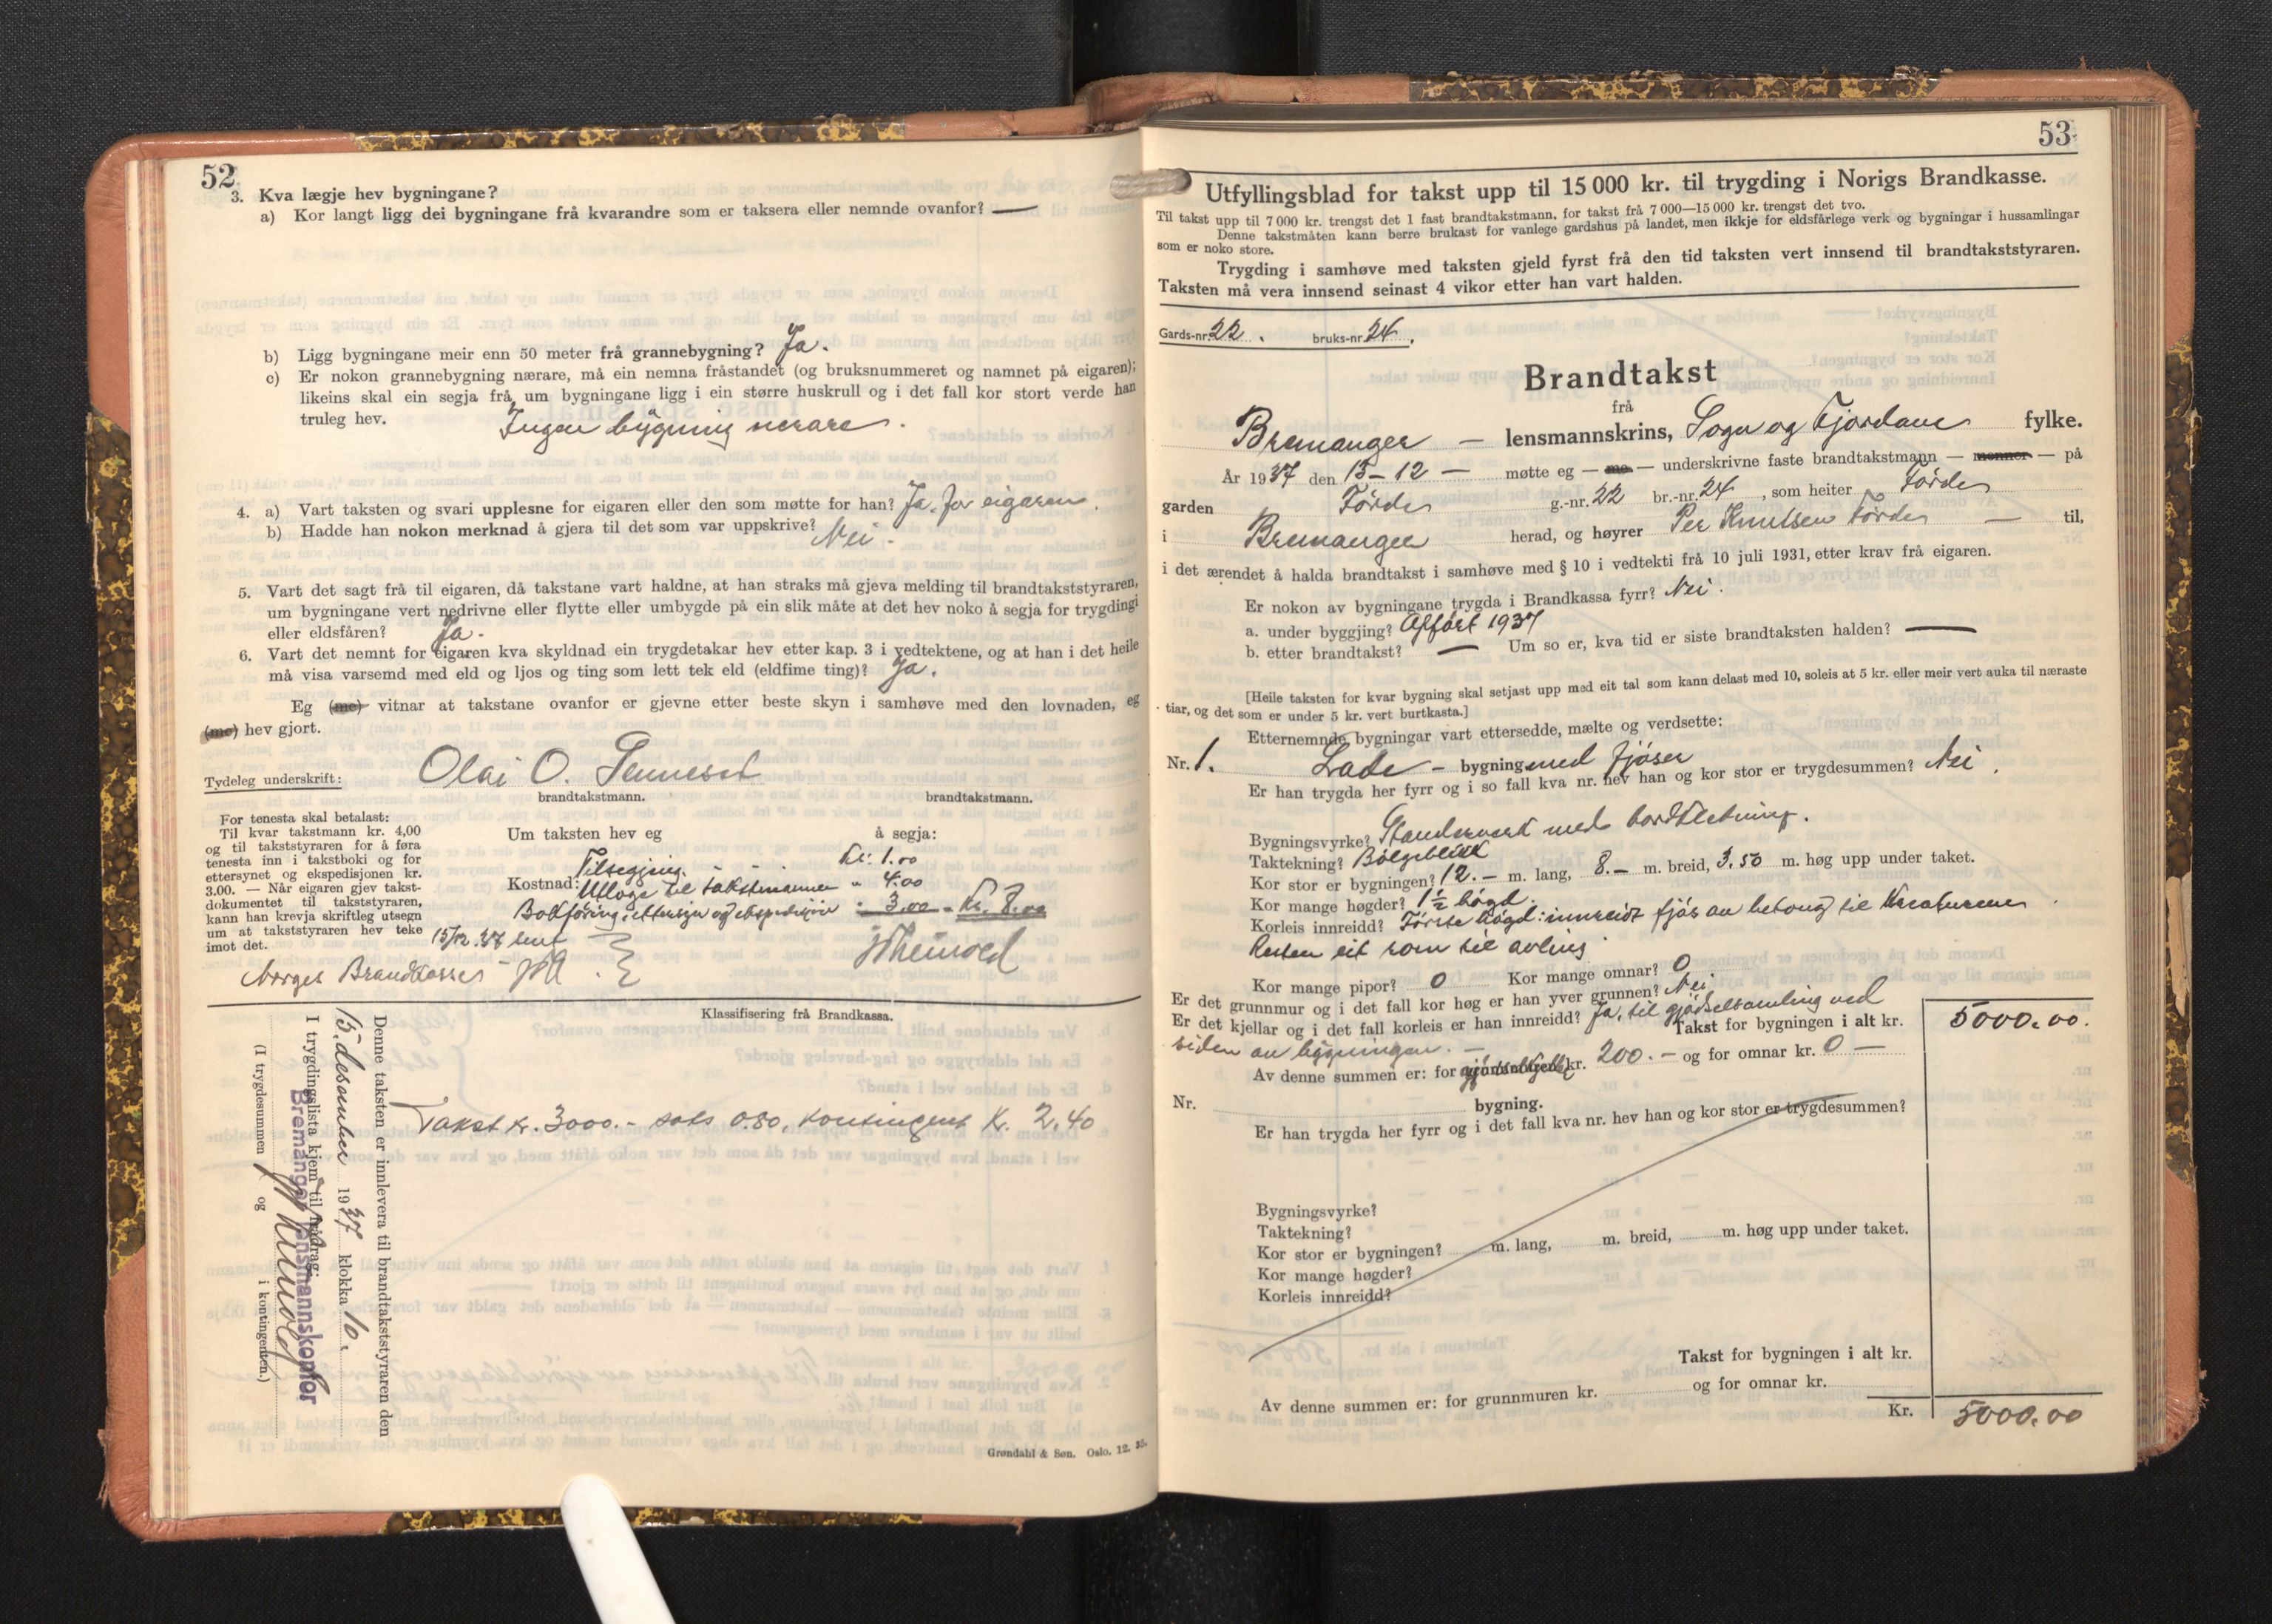 52
3. Kva lægje hev bygningane?
a) Kor langt ligg dei bygningane frå kvarandre som er taksera eller nemnde ovanfor? —
b) Ligg bygningane meir enn 50 meter frå grannebygning? Ja.
c) Er nokon grannebygning nærare, må ein nemna fråstandet (og bruksnummeret og namnet på eigaren);
likeins skal ein segja frå um bygningane ligg i ein større huskrull og i det fall kor stort verde han
truleg hev. Ingen bygning nerare.
4. a) Vart taksten og svari upplesne for eigaren eller den som møtte for han? Ja, for eigaren.
b) Hadde han nokon merknad å gjera til det som var uppskrive? Nei.
5. Vart det sagt frå til eigaren, då takstane vart haldne, at han straks må gjeva melding til brandtakststyraren,
um bygningane vert nedrivne eller flytte eller umbygde på ein slik måte at det hev noko å segja for trygdingi
eller eldsfåren? Ja.
6. Vart det nemnt for eigaren kva skyldnad ein trygdetakar hev etter kap. 3 i vedtektene, og at han i det heile
må visa varsemd med eld og ljos og ting som lett tek eld (eldfime ting)? Ja.
Eg (me) vitnar at takstane ovanfor er gjevne etter beste skyn i samhøve med den lovnaden, eg
(me) hev gjort.
Tydeleg underskrift: Olai O.
brandtakstmann. brandtakstmann.
For tenesta skal betalast:
Til kvar takstmann kr. 4,00
og til takststyraren for å føra
tenesta inn i takstboki og for
ettersynet og ekspedisjonen kr.
3.00. — Når eigaren gjev takst-
dokumentet til takststyraren,
kann han krevja skriftleg utsegn
um at takststyraren hev teke
imot det.
Um taksten hev eg å segja:
Tilsegjing - - . Kr. 1.00
Kostnad: Utlogo til takstmannen " 4.00
Bokføring, ettersyn og ekspedisjon " 3.00 = Kr. 8.00
15/12.37 sent
Norges Brandkasse
Klassifisering frå Brandkassa.
Takst kr. 3000.- sats 0.80, kontingent kr. 2.40
Denne taksten er innlevera til brandtakststyraren den
15. desember 1937 klokka 10.
I trygdingslista kjem til frådrag:
Bremanger lensmannskontor
(I trygdesummen og i kontingenten.)
Grøndahl & Søn. Oslo. 12. 35.
53
Utfyllingsblad for takst upp til 15 000 kr. til trygding i Norigs Brandkasse.
Til takst upp til 7 000 kr. trengst det 1 fast brandtakstmann, for takst frå 7 000—15 000 kr. trengst det tvo.
Denne takstmåten kann berre brukast for vanlege gardshus på landet, men ikkje for eldsfårlege verk og bygningar i hussamlingar
som er noko store.
Trygding i samhøve med taksten gjeld fyrst frå den tid taksten vert innsend til brandtakststyraren.
Taksten må vera innsend seinast 4 vikor etter han vart halden.
Gards-nr. 22. bruks-nr. 24.
Brandtakst
frå
Bremanger — lensmannskrins, Sogn og Fjordane fylke.
År 1937 den 15-12 — møtte eg — me — underskrivne faste brandtakstmann — menner — på
garden Førde g.-nr. 22 br.-nr. 24, som heiter Førde
i Bremanger herad, og høyrer Per Knutsen Førde — til,
i det ærendet å halda brandtakst i samhøve med § 10 i vedtekti frå 10 juli 1931, etter krav frå eigaren.
Er nokon av bygningane trygda i Brandkassa fyrr? Nei.
a. under byggjing? Opført 1937
b. etter brandtakst? — Um so er, kva tid er siste brandtaksten halden? —
[Heile taksten for kvar bygning skal setjast upp med eit tal som kann delast med 10, soleis at 5 kr. eller meir vert auka til næraste
tiar, og det som er under 5 kr. vert burtkasta.]
Etternemnde bygningar vart ettersedde, mælte og verdsette:
Nr. 1. Lade - bygning med fjøser
Er han trygda her fyrr og i so fall kva nr. hev han og kor stor er trygdesummen? Nei.
Bygningsvyrke? Standerverk med bordkledning.
Taktekning? Bølgeblikk
Kor stor er bygningen? 12.- m. lang, 8.- m. breid, 3.50 m. høg upp under taket.
Kor mange høgder? 1½ høgd.
Korleis innreidd? Første høgd: innreidt fjøs av betong til Kreaturene.
Resten eit rom til avling.
Kor mange pipor? 0 Kor mange omnar? 0
Er det grunnmur og i det fall kor høg er han yver grunnen? Nei
Er det kjellar og i det fall korleis er han innreidd? Ja, til gjødselsamling ved
siden av bygningen. — Takst for bygningen i alt kr. 5000.00.
Av denne summen er: for gjødselkjeller kr. 200.- og for omnar kr. 0 —
Nr. bygning.
Er han trygda her fyrr og i det fall kva nr. hev han og kor stor er trygdesummen?
Bygningsvyrke?
Taktekning?
Kor stor er bygningen? m. lang, m. breid, m. høg upp under taket.
Kor mange høgder?
Korleis innreidd?
Takst for bygningen i alt kr.
Av denne summen er: for grunnmuren kr. og for omnar kr.
Kr. 5000.00